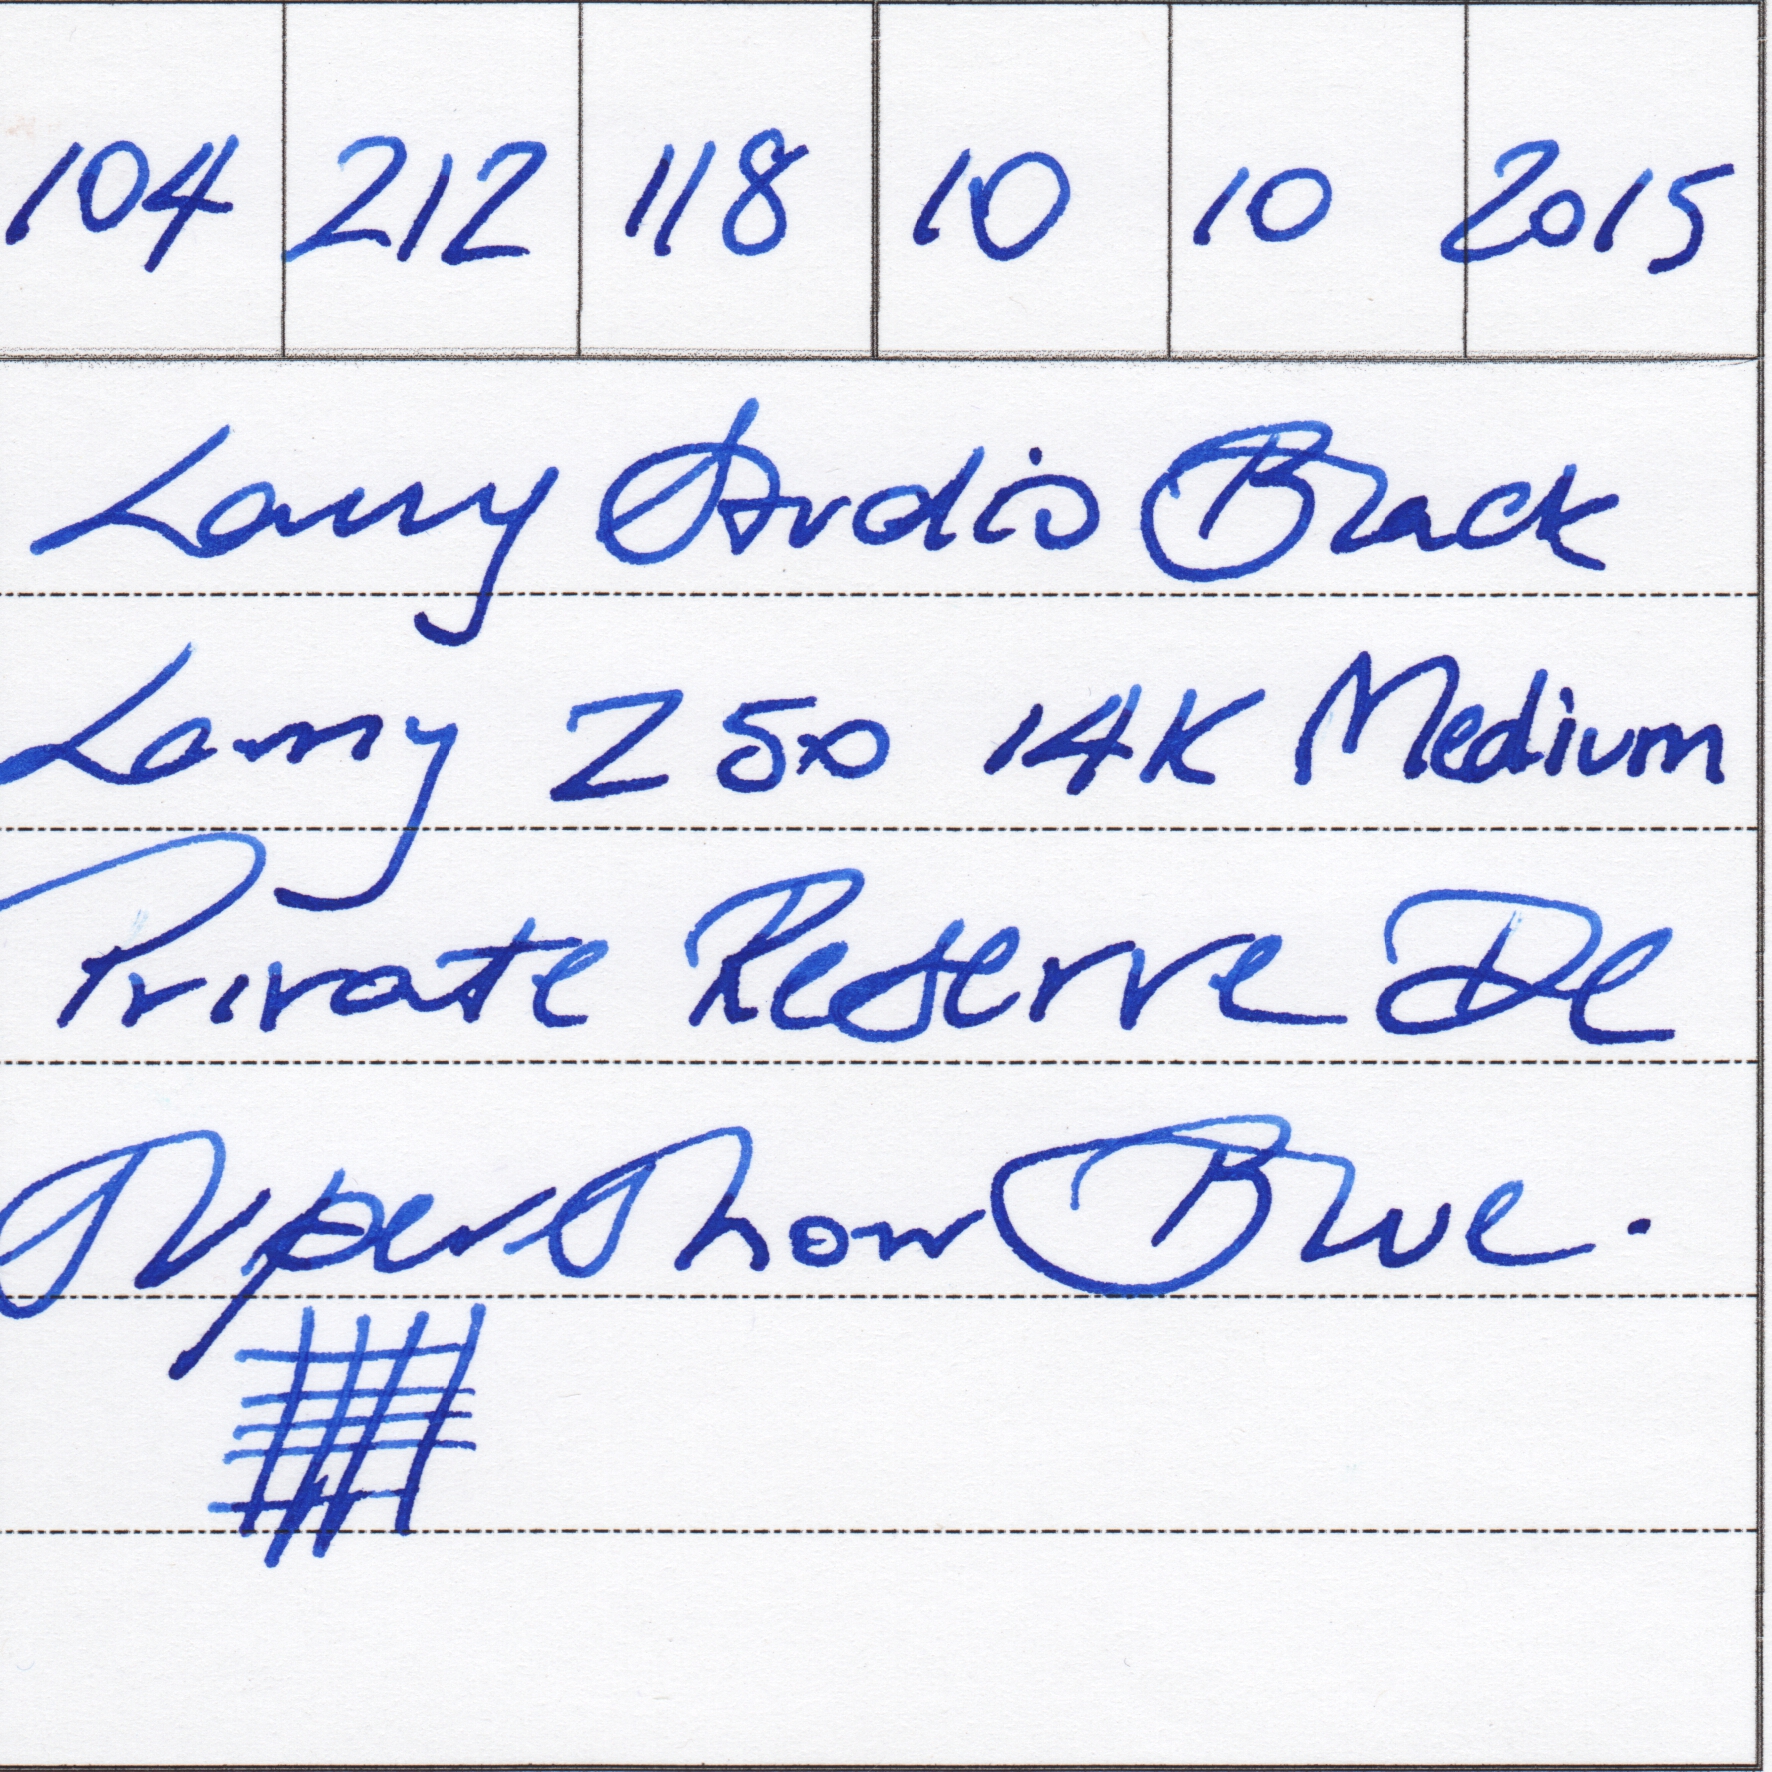 104 212 118 10 10 2015
Lamy Studio Black
Lamy Z50 14K Medium
Private Reserve DC
Supershow Blue.